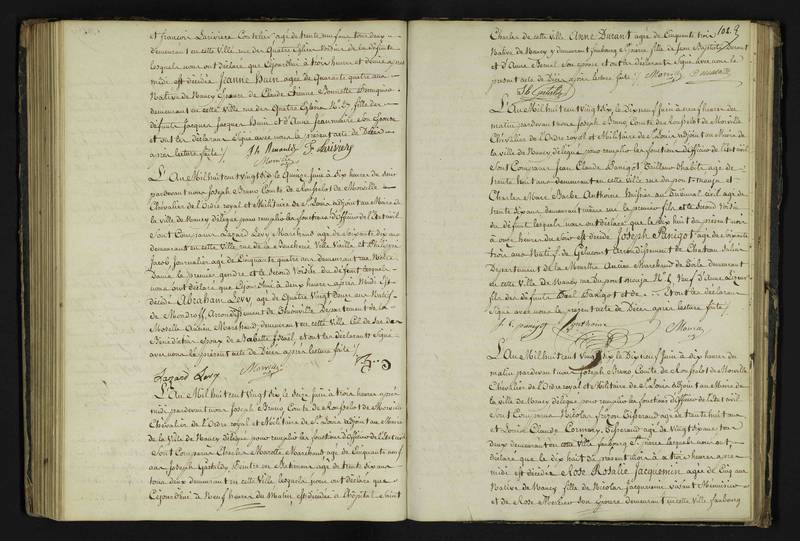 et françois Larivière Cordelier agé de trente neuf ans tous deux
demeurant en cette Ville rue des Quatre Eglises Voisins de la défunte
lesquels nous ont déclaré que cejourdhui à trois heures et demie après
midi est décédée Jeanne Huin agée de Quarante quatre ans
Native de Nancy Epouse de Claude Etienne
demeurant en cette Ville rue des Quatre Eglises N° fille des
défunts Jacques Huin et d'Anne Jeanmaire son Epouse
et ont les déclarans Signé avec nous le présent acte de Décès
après lecture faite /.
L'An Mil huit cent Vingt dix le Quinze Juin à heures du soir
pardevant nous Joseph Bruno Comte de Ronfrelot de Morville
Chevalier de l'Ordre royal et Militaire de St Louis adjoint au Maire de
la Ville de Nancy délégué pour remplir les fonctions d'officier de l'état civil
Sont Comparus Lazard Levy Marchand agé de soixante dix ans
demeurant en cette Ville rue de la Boucherie Ville Vieille et Philippe
Jacob, Journalier agé de Cinquante quatre ans demeurant rue
le premier gendre et le Second Voisin du défunt lesquels
nous ont déclaré que Cejourdhui à deux heures après Midi Est
décédé Abraham Levy, agé de Quatre Vingt Douze ans Natif
de Mondroff, Arrondissement de Thionville Département de la
Moselle Ancien Marchand, demeurant en cette Ville
Epoux de Babette Israël, et ont les déclarans Signé
avec nous le présent acte de Décès après lecture faite /.
Lazard Levy
L'An Mil huit cent Vingt dix le Juin à trois heures après
midi pardevant nous Joseph Bruno Comte de Ronfrelot de Morville
Chevalier de l'Ordre royal et Militaire de St Louis adjoint au Maire
de la Ville de Nancy délégué pour remplir les fonctions d'officier de l'état civil
Sont Comparus Charles Marotte Marchand agé de Cinquante neuf
ans Joseph agé de trente dix ans
tous deux demeurant en cette Ville lesquels nous ont déclaré que
Cejourdhui à Neuf heures du Matin, est décédée à l'hôpital Saint
102
Charles de cette Ville Anne Durant agée de Cinquante trois
Native de Nancy y demeurant faubourg St Pierre fille de Jean Baptiste Durant
et d'Anne son épouse et ont les déclarans Signé avec nous le
présent acte de Décès après lecture faite /.
L'An Mil huit cent Vingt dix, le Dix neuf Juin à neuf heures du
matin pardevant nous Joseph Bruno Comte de Ronfrelot de Morville
Chevalier de l'Ordre royal et Militaire de St Louis adjoint au Maire de
la Ville de Nancy délégué pour remplir les fonctions d'officier de l'état civil
Sont Comparus Jean Claude Panigot Tailleur d'habits agé de
trente huit ans demeurant en cette Ville rue du pont mouja et
Charles Barbe Anthoine huissier au Tribunal civil agé de
trente dix ans demeurant même rue le premier fils et le Second Voisin
du défunt lesquels nous ont déclaré que le dix huit du présent mois
à onze heures du soir est décédé Joseph Panigot agé de soixante
trois ans Natif de Gelucourt Arrondissement de Chateau Salins
Département de la Meurthe Ancien Marchand de Toile demeurant
en cette Ville de Nancy rue du pont mouja N° 1, Veuf d'Anne
fils des défunts Paul Panigot et de et ont les déclarans
Signé avec nous le présent acte de Décès après lecture faite /.
Anthoine
L'An Mil huit cent Vingt dix le Dix neuf Juin à dix heures du
matin pardevant nous Joseph Bruno Comte de Ronfrelot de Morville
Chevalier de l'Ordre royal et Militaire de St Louis adjoint au Maire de
la Ville de Nancy délégué pour remplir les fonctions d'officier de l'état civil
Sont Comparus Nicolas Tisserand agé de trente huit ans
et Louis Claude Tisserand agé de Vingt dix ans tous
deux demeurant en cette Ville faubourg St Pierre lesquels nous ont
déclaré que le dix huit du présent mois à trois heures après
midi est décédée Rose Rosalie Jacquemin agée de Cinq ans
Native de Nancy fille de Nicolas Jacquemin vivant
et de Rose son Epouse demeurant en cette Ville faubourg